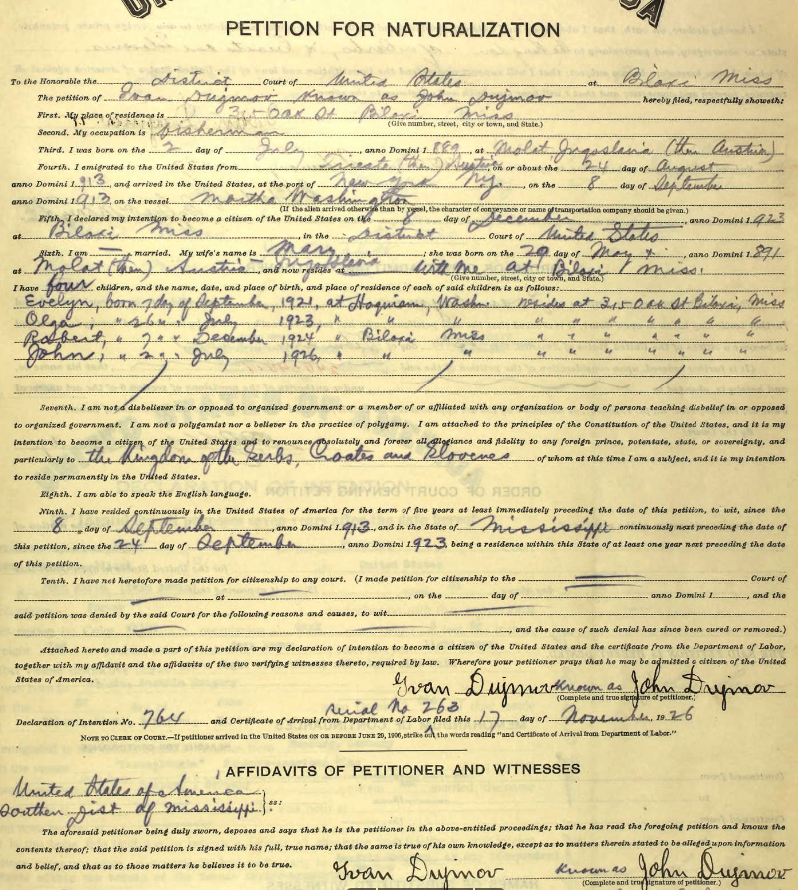 PETITION FOR NATURALIZATION
To the Honorable the District Court of United States at Biloxi Miss
The petition of Ivan Dujmov known as John Dujmov hereby filed, respectfully showeth:
First. My place of residence is 315 Oak St Biloxi Miss
(Give number, street, city or town, and State.)
Second. My occupation is Fisherman
Third. I was born on the 2 day of July 1889, at Molat Jugoslavia (then Austria)
Fourth. I emigrated to the United States from Trieste (then) Austria on or about the 24 day of August
anno Domini 1913 and arrived in the United States, at the port of New York Ny., on the 8 day of September
anno Domini 1913 on the vessel Martha Washington
(If the alien arrived otherwise than by vessel, the character of conveyance or name of transportation company should be given.)
Fifth. I declared my intention to become a citizen of the United States on the day of December, anno Domini 1923
at Biloxi Miss, in the District Court of United States
Sixth. I am — married. My wife's name is Mary; she was born on the 29 day of May, 1891
at Molat (then) Austria Jugoslavia and now resides at with me at Biloxi Miss.
(Give number, street, city or town, and State.)
I have four children, and the name, date, and place of birth, and place of residence of each of said children is as follows:
Evelyn, born 7 day of September, 1921, at Hoquiam, Washn resides at 315 Oak St Biloxi, Miss
Olga, " 26 " " July 1923, " " " " " " " " "
Robert, " 7 " " December 1924 " Biloxi Miss " " " " " " "
John, " 2 " " July 1926, " " " " " " " " " "
Seventh. I am not a disbeliever in or opposed to organized government or a member of or affiliated with any organization or body of persons teaching disbelief in or opposed
to organized government. I am not a polygamist nor a believer in the practice of polygamy. I am attached to the principles of the Constitution of the United States, and it is my
intention to become a citizen of the United States and to renounce absolutely and forever all allegiance and fidelity to any foreign prince, potentate, state, or sovereignty, and
particularly to the Kingdom of the Serbs, Croates and Slovenes of whom at this time I am a subject, and it is my intention
to reside permanently in the United States.
Eighth. I am able to speak the English language.
Ninth. I have resided continuously in the United States of America for the term of five years at least immediately preceding the date of this petition, to wit, since the
8 day of September, anno Domini 1913, and in the State of Mississippi continuously next preceding the date of
this petition, since the 24 day of September, anno Domini 1923, being a residence within this State of at least one year next preceding the date
of this petition.
Tenth. I have not heretofore made petition for citizenship to any court. (I made petition for citizenship to the Court of
at , on the day of anno Domini 1 , and the
said petition was denied by the said Court for the following reasons and causes, to wit
, and the cause of such denial has since been cured or removed.)
Attached hereto and made a part of this petition are my declaration of intention to become a citizen of the United States and the certificate from the Department of Labor,
together with my affidavit and the affidavits of the two verifying witnesses thereto, required by law. Wherefore your petitioner prays that he may be admitted a citizen of the United
States of America.
Ivan Dujmov known as John Dujmov
(Complete and true signature of petitioner.)
Serial No 263
Declaration of Intention No. 764 and Certificate of Arrival from Department of Labor filed this 17 day of November, 1926
NOTE TO CLERK OF COURT.—If petitioner arrived in the United States ON OR BEFORE JUNE 29, 1906, strike out the words reading "and Certificate of Arrival from Department of Labor."
AFFIDAVITS OF PETITIONER AND WITNESSES
United States of America
Southern Dist of Mississippi } ss:
The aforesaid petitioner being duly sworn, deposes and says that he is the petitioner in the above-entitled proceedings; that he has read the foregoing petition and knows the
contents thereof; that the said petition is signed with his full, true name; that the same is true of his own knowledge, except as to matters therein stated to be alleged upon information
and belief, and that as to those matters he believes it to be true.
Ivan Dujmov known as John Dujmov
(Complete and true signature of petitioner.)